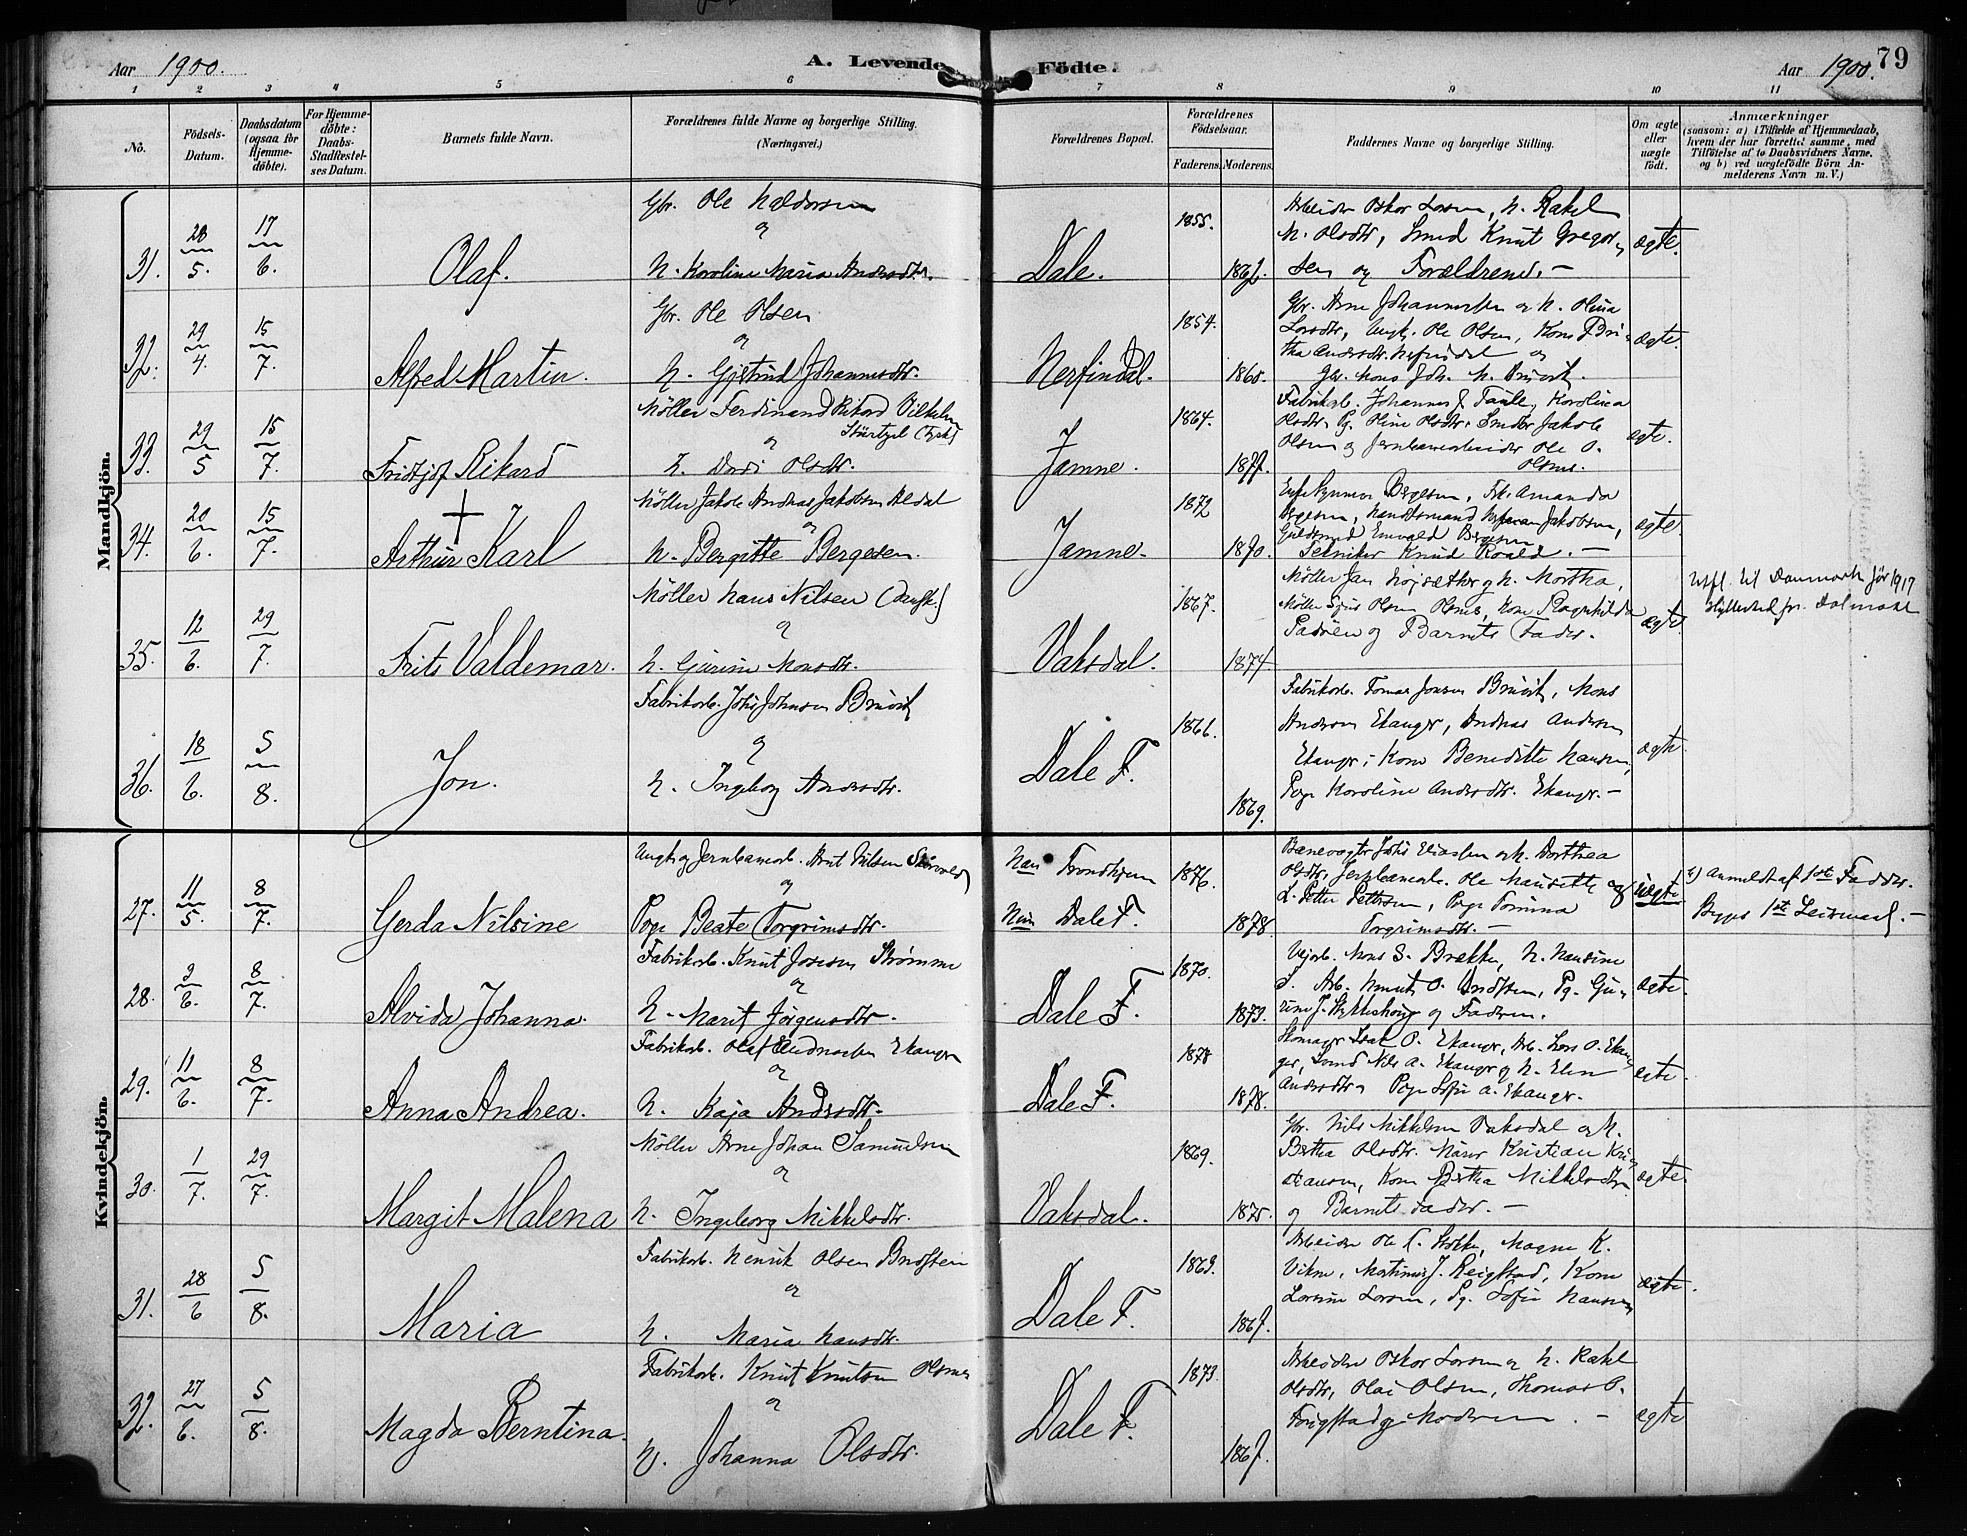 Aar 1900.
A. Levende Födte.
Aar 1900.
79
1 2 3 4 5 6 7 8 9 10 11
No.
Födsels-Datum.
Daabsdatum (ogsaa for Hjemme-döbte).
For Hjemme-döbte: Daabs-Stadfæstel-ses Datum.
Barnets fulde Navn.
Forældrenes fulde Navne og borgerlige Stilling. (Næringsvei.)
Forældrenes Bopæl.
Forældrenes Födselsaar.
Faderens. Moderens.
Faddernes Navne og borgerlige Stilling.
Om ægte eller uægte födt.
Anmærkninger
(saasom: a) i Tilfælde af Hjemmedaab, hvem der har forrettet samme, med Tilföielse af to Daabsvidners Navne, og b) ved uægtefödte Börn An-melderens Navn m. V.)
Mandkjön.
31. 28/5. 17/6. Olaf. Gbr. Ole Haldorsen
og
H. Karoline Maria Andersdtr. Dale. 1855. 1862. Arbeider Oskar Larsen, H. Rakel
M. Olsdtr, Smed Knut Gregor-
sen og Forældrene. — ægte.
32. 29/4. 15/7. Alfred Martin. Gbr. Ole Olsen
og
H. Gjertrud Johannesdtr. Nerfindal. 1854. 1860. Gbr. Arne Johannessen og H. Olina
Larsdtr, Ungk. Ole Olsen, Kone Bri-
tha Andersdtr. Nefindal og
ægte.
33. 29/5 15/7. Fridtjof Rikard Möller Ferdinand Rikard Vilhelm
(Tysk)
og
H. Olsdtr. Jamne. 1864. 1877. Fabrikarb. Johannes Karolina
Olsdtr. Pg. Oline Olsdtr. Smeder Jakob
Olsen og Jernbanearbeider Ole O.
ægte.
34. 20/6. 15/7. Arthur Karl Möller Jakob Andreas Jakobsen
og
H. Bergitte Bergesen. Jamne. 1872 1870. Bergesen, Frk. Amanda
Bergesen, Handelsmand Jakobsen,
Guldsmed Bergesen
Tekniker Knud Roald. — ægte.
35. 12/6. 29/7. Frits Valdemar. Möller Hans Nilsen (dansk.)
og
H. Gurine Monsdtr. Vaksdal. 1867. 1874 Möller Jan og H. Martha,
Möller Sjur Olsen Kone Ragnhilda
og Barnets Fader. ægte. Utfl. til Danmark før 1917
36. 18/6. 5/8. Jon. Fabrikarb. Johs Johnsen Bruvik
og
H. Ingeborg Andersdtr. Dale F. 1866. 1869. Fabrikarb. Tomas Jonsen Bruvik, Mons
Andersen Ekanger, Andreas Andersen
Ekanger, Kone Benedikte Hansen,
Pige Karoline Andersdtr. Ekanger. — ægte
Kvindekjön.
27. 11/5. 8/7. Gerda Nilsine Ungk. og Jernbanearb. Arnt Nilsen
og
Pige Beate Torgrimsdtr. Han Trondhjem
Hun Dale F. 1876. 1878. Banevogter Johs Eliassen og H. Dorthea
Olsdtr, Jernbanearb. Ole og
L. Petter Pettersen, Pige
Torgrimsdtr. — uægte Anmeldt af 1ste Fadder.
Begges 1ste Leiermaal. —
28. 2/6. 8/7. Alvida Johanna. Fabrikarb. Knut Josefsen Strømme
og
H. Marit Jörgensdtr. Dale F. 1870. 1873. Vejarb. Mons S. Brække, H. Hansine
J. Arb. O. Pg. Gu-
og Faderen. ægte.
29. 11/6. 8/7. Anna Andrea. Fabrikarb. Olaf Andreassen Ekanger
og
H. Kaja Andersdtr. Dale F. 1878 1878. Skomager Isak O. Ekanger, Arb. Lars O. Ekan-
ger, Smed Nils A. Ekanger og H. Elen
Andersdtr og Pige Sofie A. Ekanger. ægte.
30. 1/7. 29/7. Margit Malena Möller Arne Johan Samuelsen
og
H. Ingeborg Mikkelsdtr. Vaksdal. 1869. 1875. Gbr. Nils Mikkelsen Vaksdal og H.
Bertha Olsdtr. Murer Kristian Kri-
stiansen, Kone Bertha Mikkelsdtr
og Barnets Fader. — ægte.
31. 28/6 5/8. Maria Fabrikarb. Henrik Olsen
og
H. Maria Hansdtr. Dale F. 1863. 1867. Arbeider Ole Magne K.
Vikne, Martinus J. Reigstad, Kone
Larsine Larsen, Pg. Sofie Hansen ægte.
32. 27/6. 5/8. Magda Berntina. Fabrikarb. Knut Knutsen
og
H. Johanna Olsdtr. Dale F. 1873. 1867. Arbeider Oskar Larsen og H. Rakel
Olsdtr, Olai Olsen, Thomas O.
og Moderen. — ægte